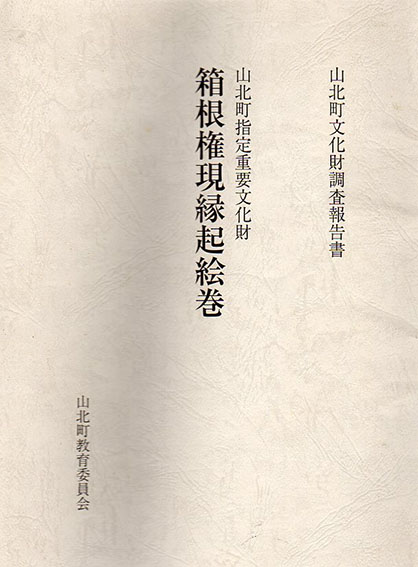 山北町文化財調査報告書
山北町指定重要文化財
箱根権現縁起絵巻
山北町教育委員会